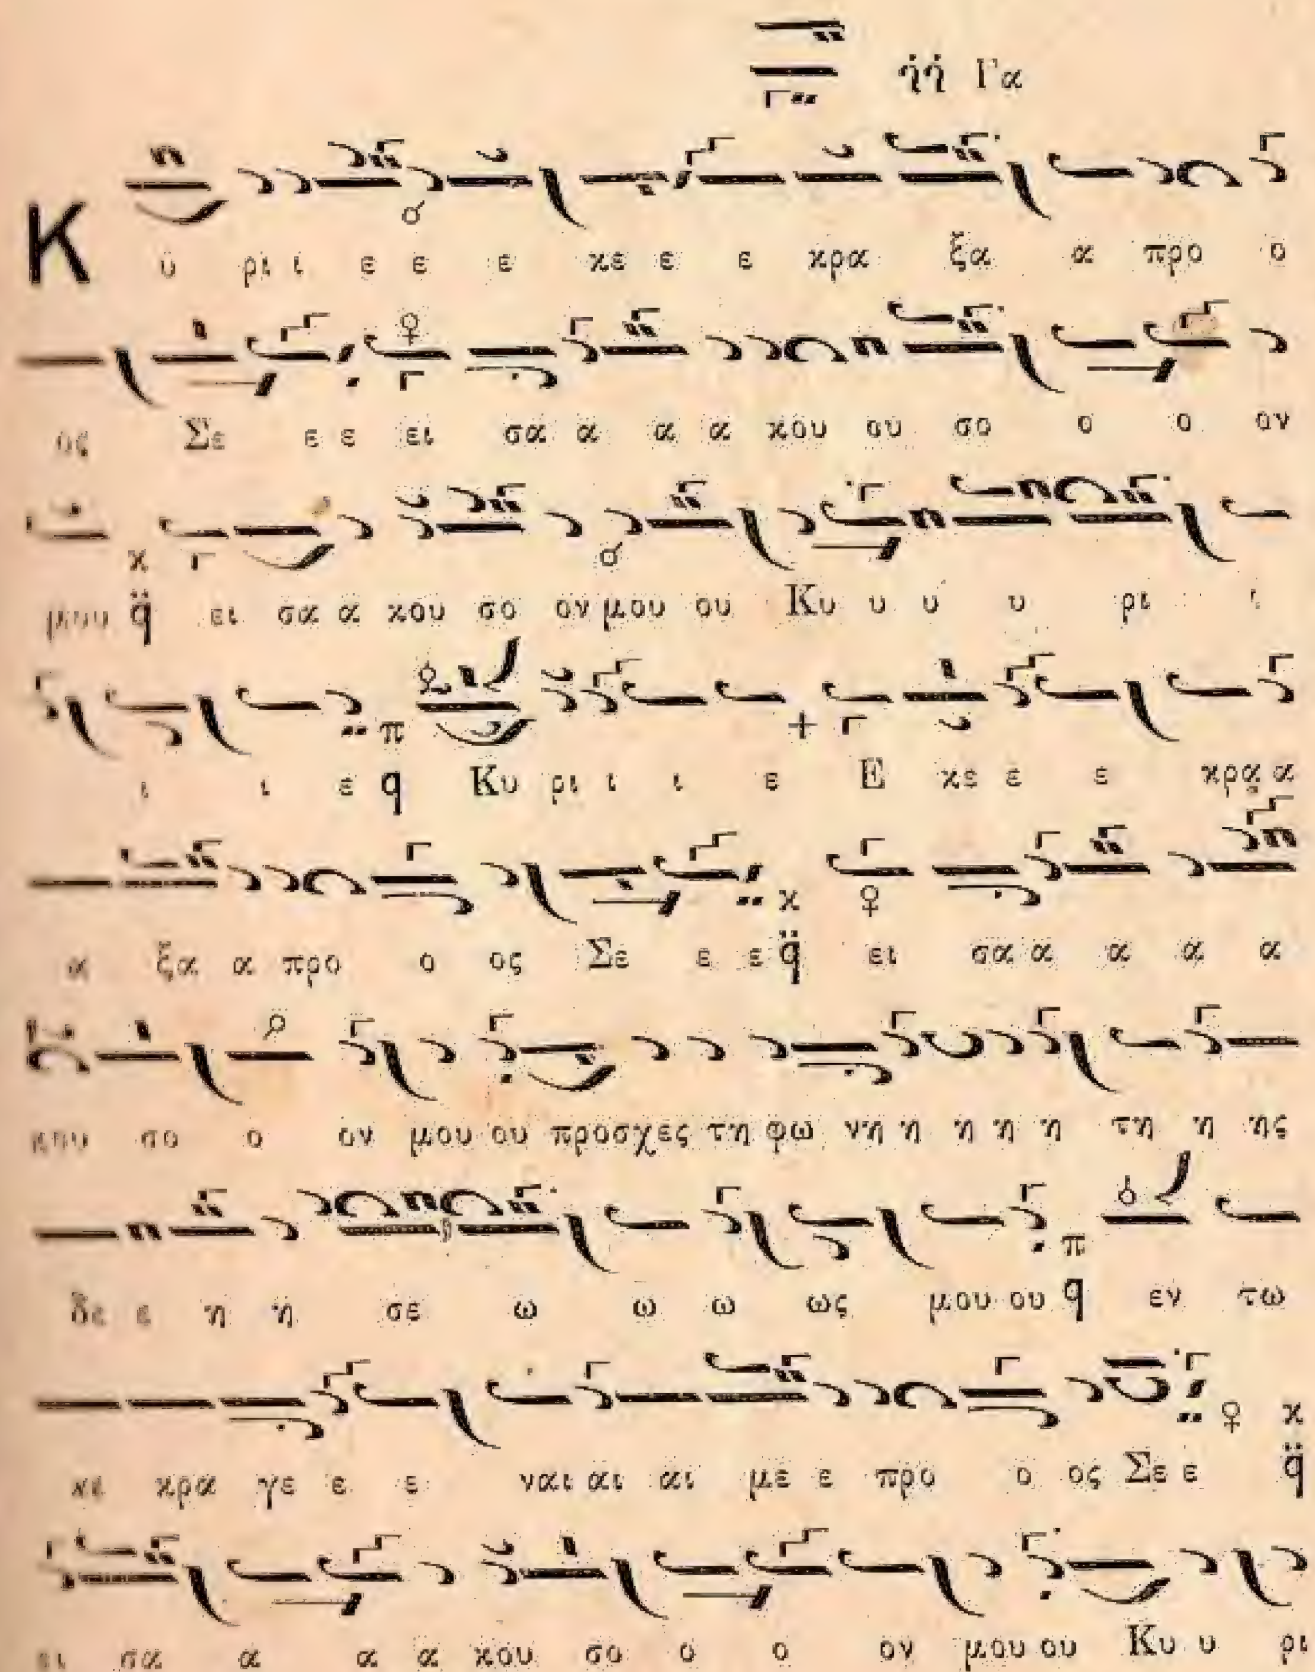 ἠή Γα
Κ υ ρι ι ε ε ε κε ε ε κρα ξα α προ ο
ος Σε ε ε ει σα α α α κου ου σο ο ο ον
μου ει σα α κου σο ον μου ου Κυ υ υ υ ρι ι
ι ι ε Κυ ρι ι ι ε Ε κε ε ε κρα α
α ξα α προ ο ος Σε ε ε ει σα α α α α
κου σο ο ον μου ου προσχες τη φω νη η η η η τη η ης
δε ε η η σε ω ω ω ως μου ου εν τω
κε κρα γε ε ε ναι αι αι με ε προ ο ος Σε ε
ει σα α α α κου σο ο ο ον μου ου Κυ υ ρι